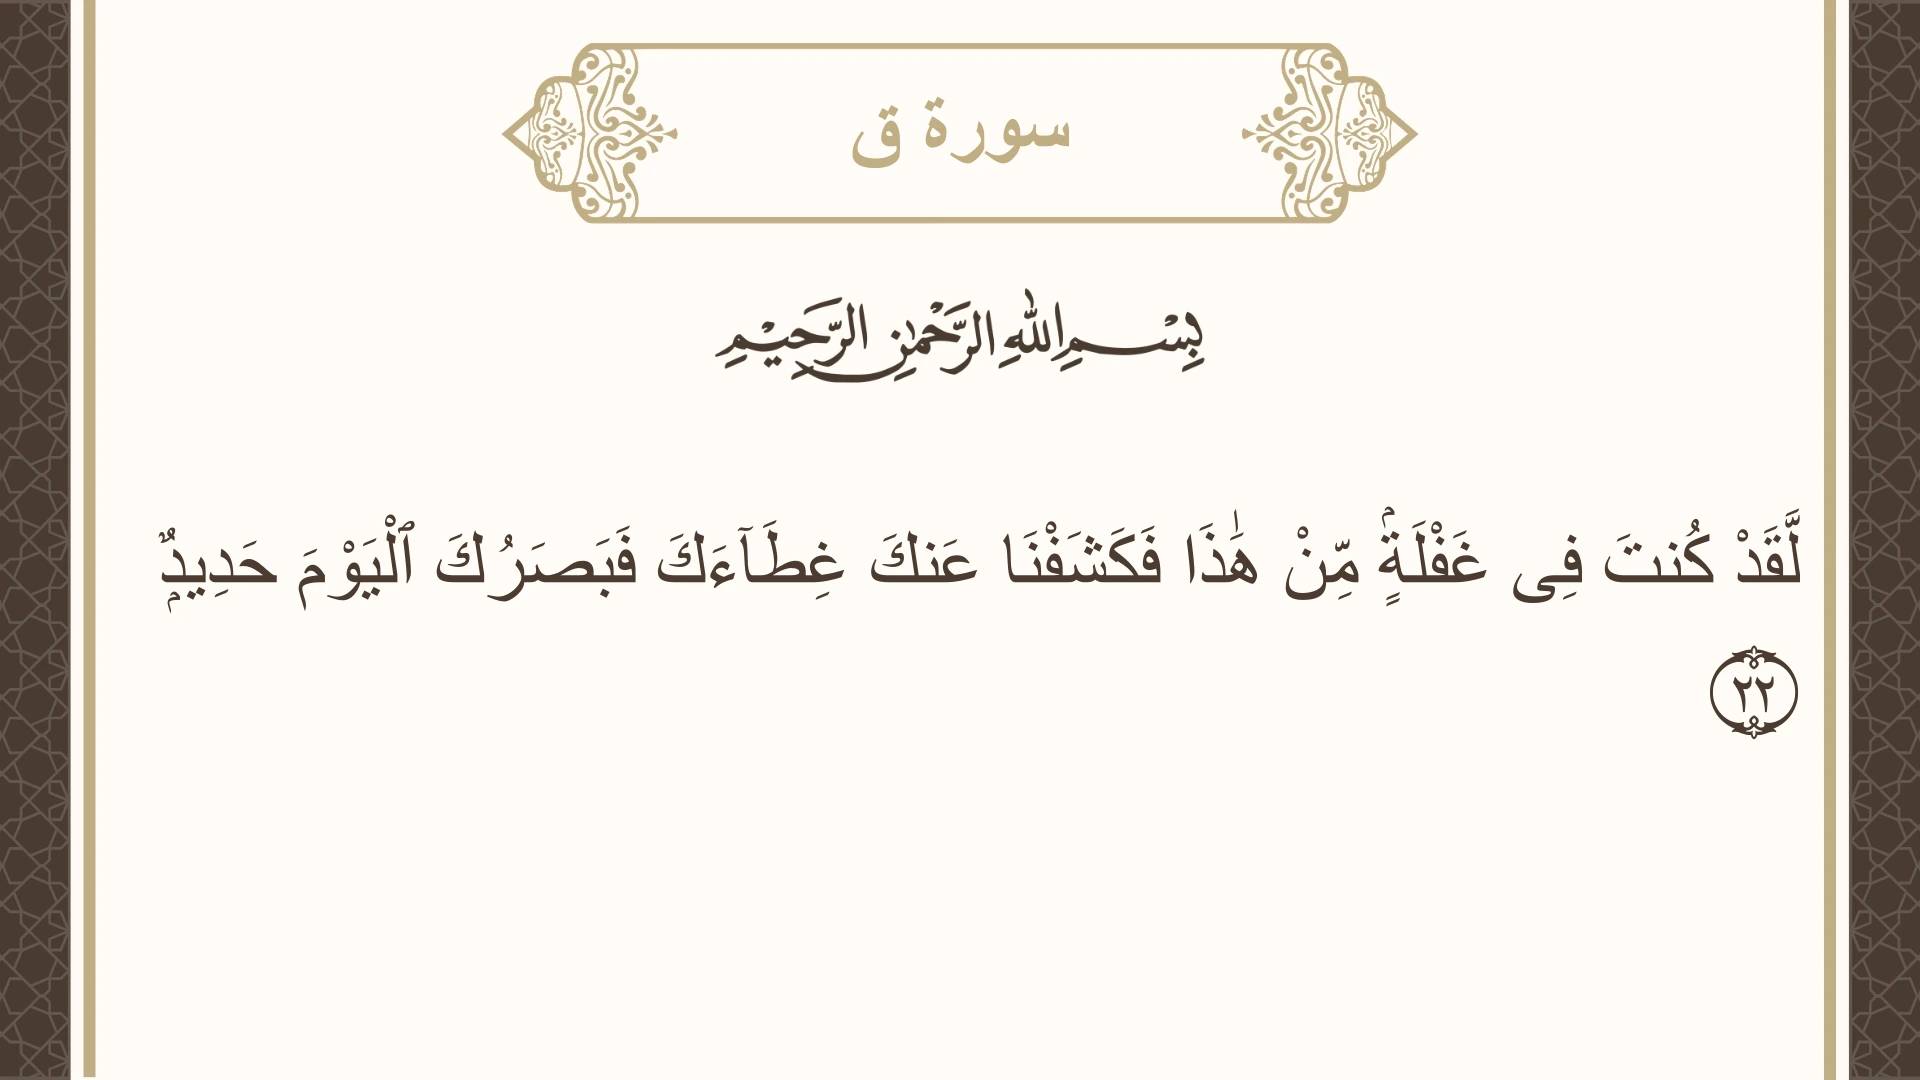 سورة ق
بِسْمِ اللهِ الرَّحْمٰنِ الرَّحِيْمِ
لَّقَدْ كُنتَ فِى غَفْلَةٍۢ مِّنْ هَٰذَا فَكَشَفْنَا عَنكَ غِطَآءَكَ فَبَصَرُكَ ٱلْيَوْمَ حَدِيدٌۭ
٢٢